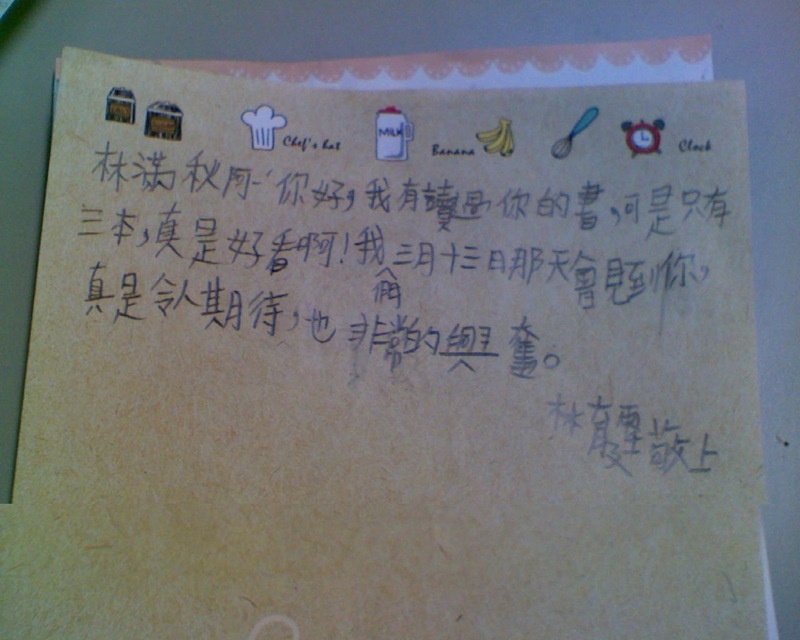 Chef's hat MILK Banana Clock
林滿秋阿 你好,我有讀過你的書,可是只有
三本,真是好看啊!我們三月十三日那天會見到你,
真是令人期待,也非常的興奮。
林 敬上